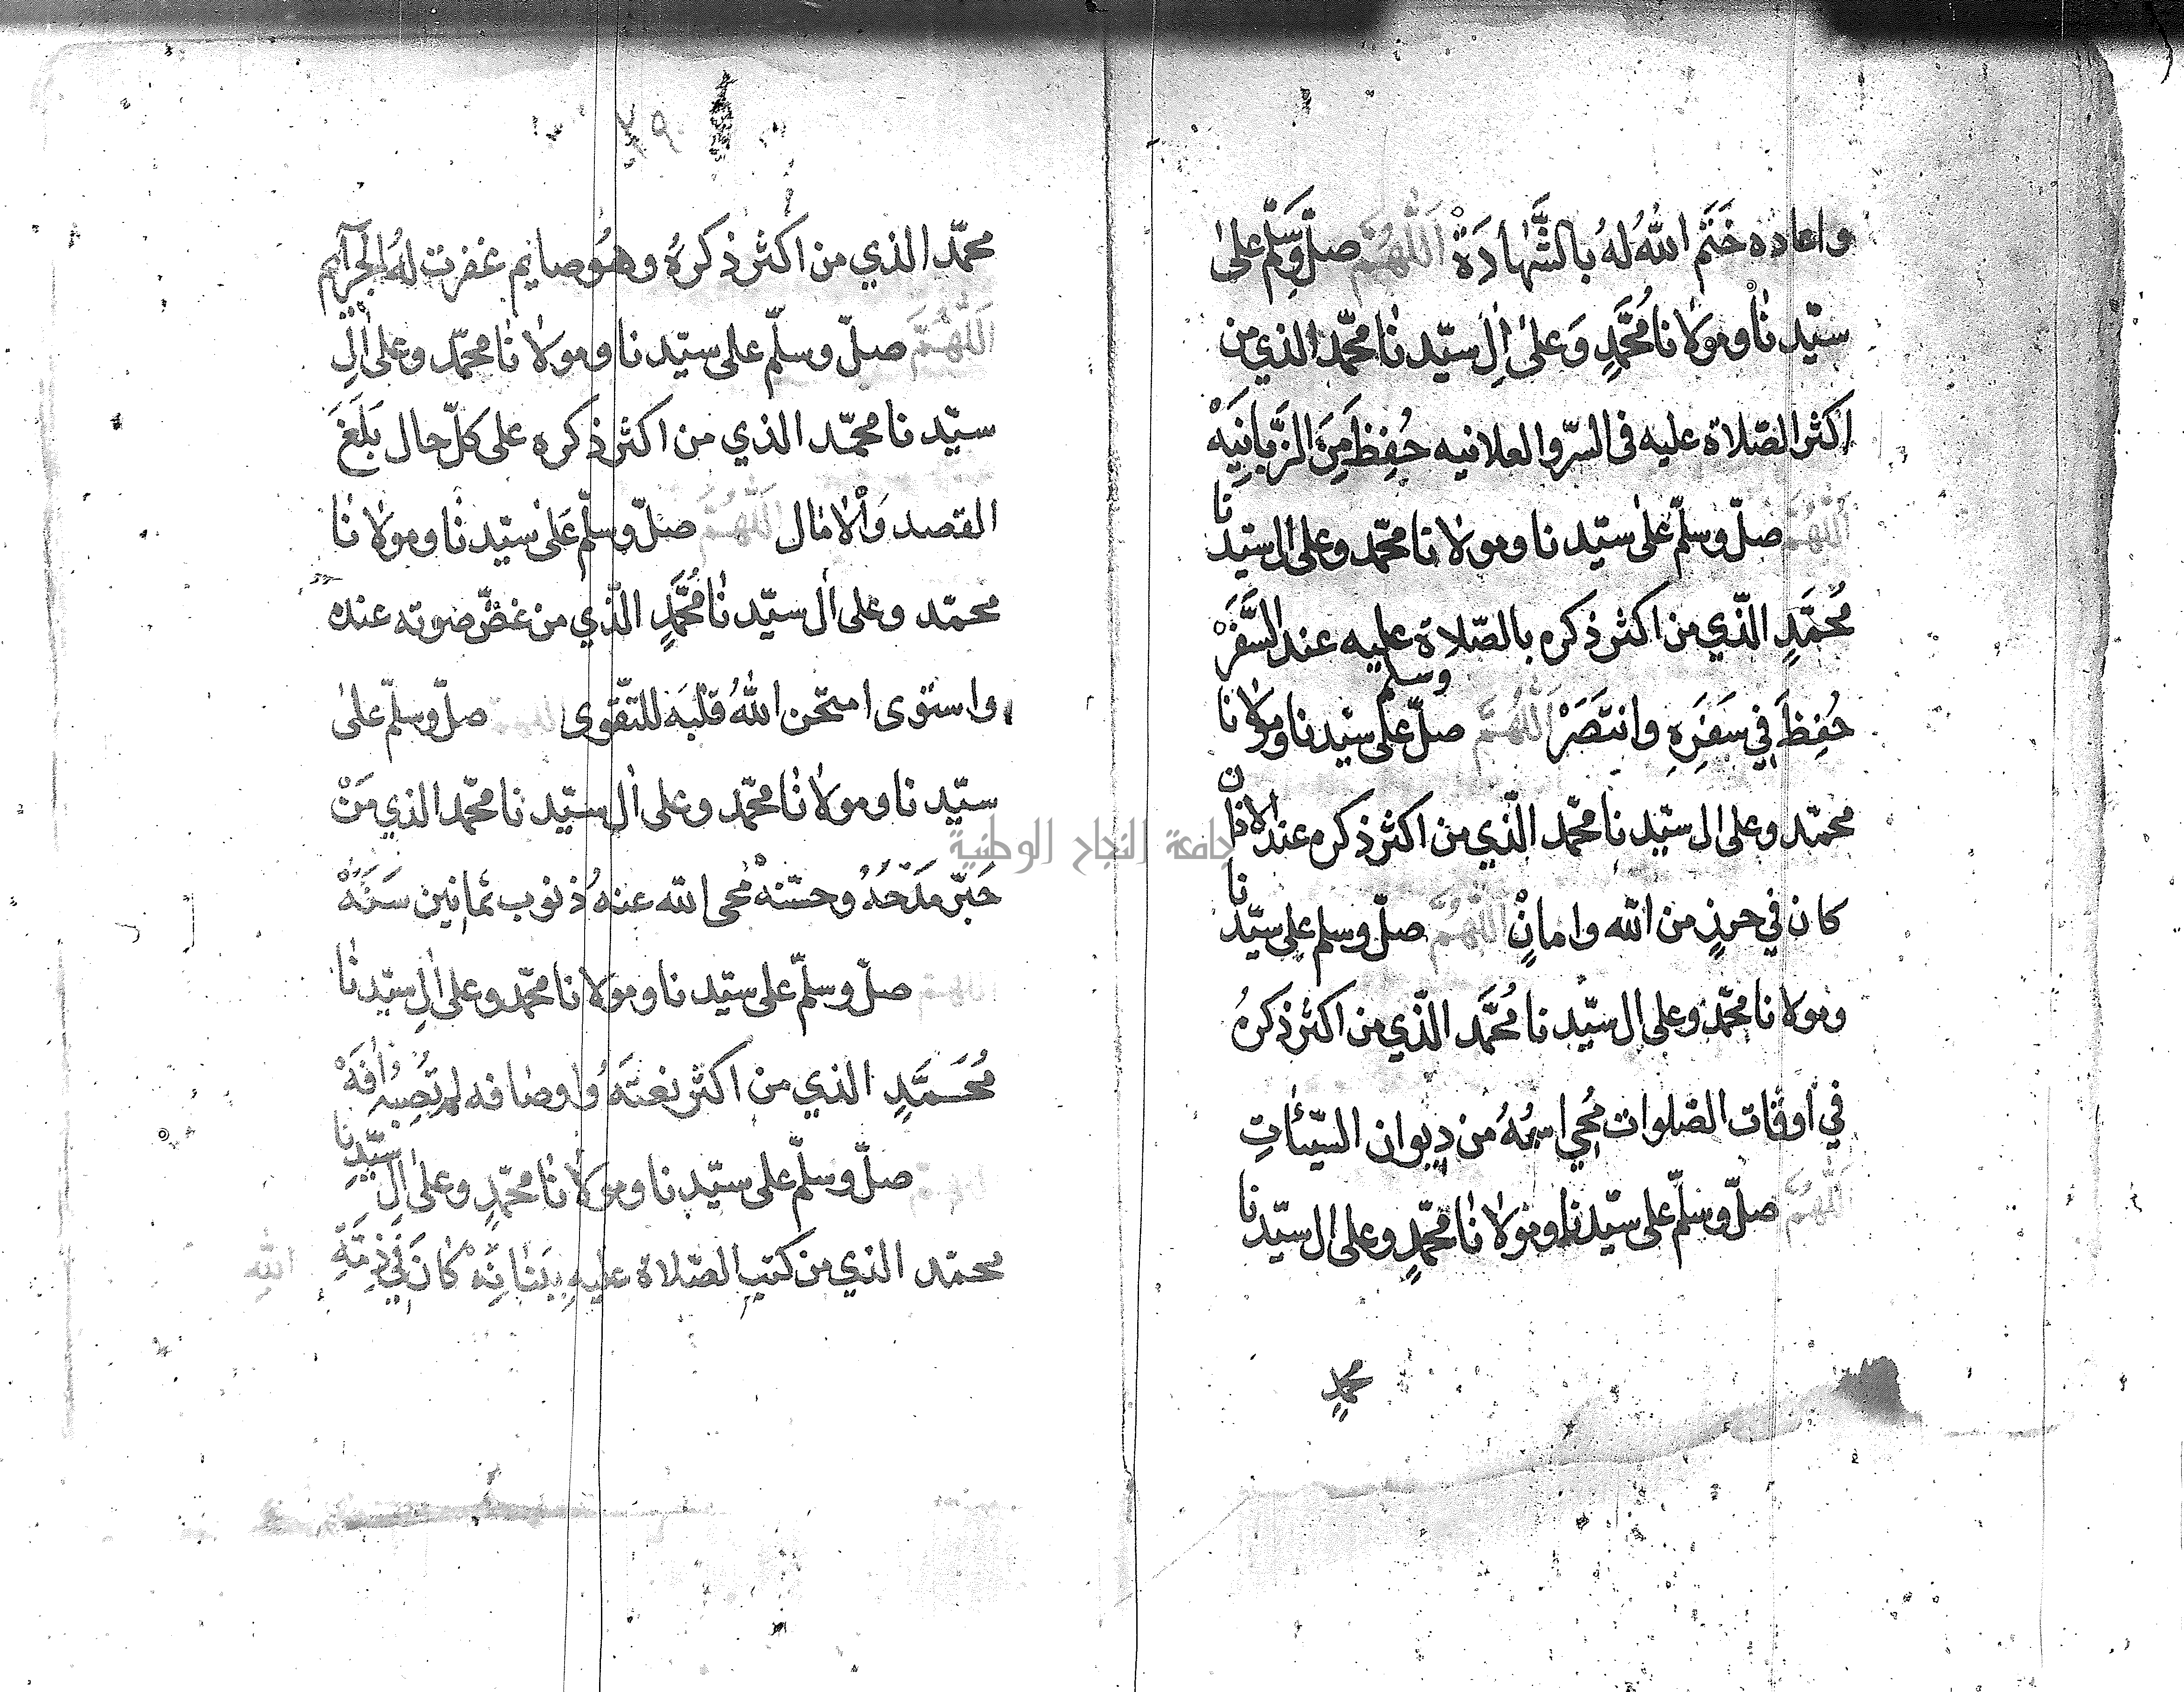 واعاده خَتَم اللهُ لهُ بالشَّهادَةْ اَللّٰهُمَّ صلّ وَسَلِّم على
سيّدنا ومولانا مُحَمَّدٍ وَعلىٰ اٰلِ سيّدنا محمّد الذي من
اكثر الصّلاة عليه فى السرّ والعلانيه حُفِظَ مِنَ الزَّبانِيَهْ
اَللّٰهُمَّ صلّ وسلّم علىٰ سيّدنا ومولانا محمّد وعلى اٰل سيّدنا
مُحَمَّدٍ الذّي من اكثر ذكره بالصّلاة عليه عند السَّفَرْ
حُفِظَ في سَفَرِهِ وانتَصَرْ اَللّٰهُمَّ صلّ وسلم على سيّدنا ومولانا
محمّد وعلى ال سيّدنا محمّد الذّي من اكثر ذكره عند الاذان
كان في حرزٍ من الله وامانٍ اَللّٰهُمَّ صلّ وسلم على سيّدنا
ومولانا محمّد وعلى ال سيّدنا مُحَمَّد الذّي من اكثر ذكرهُ
في اوقات الصّلوات مُحِي اسمُهُ من ديوان السّيئاتِ
اَللّٰهُمَّ صلّ وسلّم على سيّدنا ومولانا محمّدٍ وعلى ال سيّدنا
محمدٍ
٧٩
محمّد الذي من اكثر ذكرهُ وهُوصايم غفرت لهُ الجرآيم
اَللّٰهُمَّ صلّ وسلّم على سيّدنا ومولانا محمّد وعلى اٰلِ
سيّدنا محمّد الذي من اكثر ذكره على كلّ حال بَلَغَ
القصد وَالْاٰمال اَللّٰهُمَّ صلّ وسلّم عَلىٰ سيّدنا ومولانا
محمّد وعلى اٰل سيّدنا مُحَمَّدٍ الذّي من غضّ صوته عنده
واستوى امتحن اللهُ قلبَه للتّقوى اللهم صلّ وسلّم علىٰ
سيّدنا ومولانا محمّد وعلى اٰل سيّدنا محمّد الذي مَنْ
حَبّر مَدْحَهُ وحسّنهْ مُحى الله عنهُ ذنوب ثمانين سَنَهْ
اللهم صلّ وسلّم على سيّدنا ومولانا محمّد وعلى اٰلِ سيّدنا
مُحَمَّدٍ الذي من اكثر نعتَهُ واوصافه لم تُصِبهُ اٰفَهْ
اللهم صلّ وسلّم على سيّدنا ومولانا محمّدٍ وعلىٰ اٰل سيّدنا
محمّد الذي من كتب الصّلاة عليهِ بِبَنَانِهْ كانَ في ذِمَّةِ
اللهِ
جامعة النجاح الوطنية